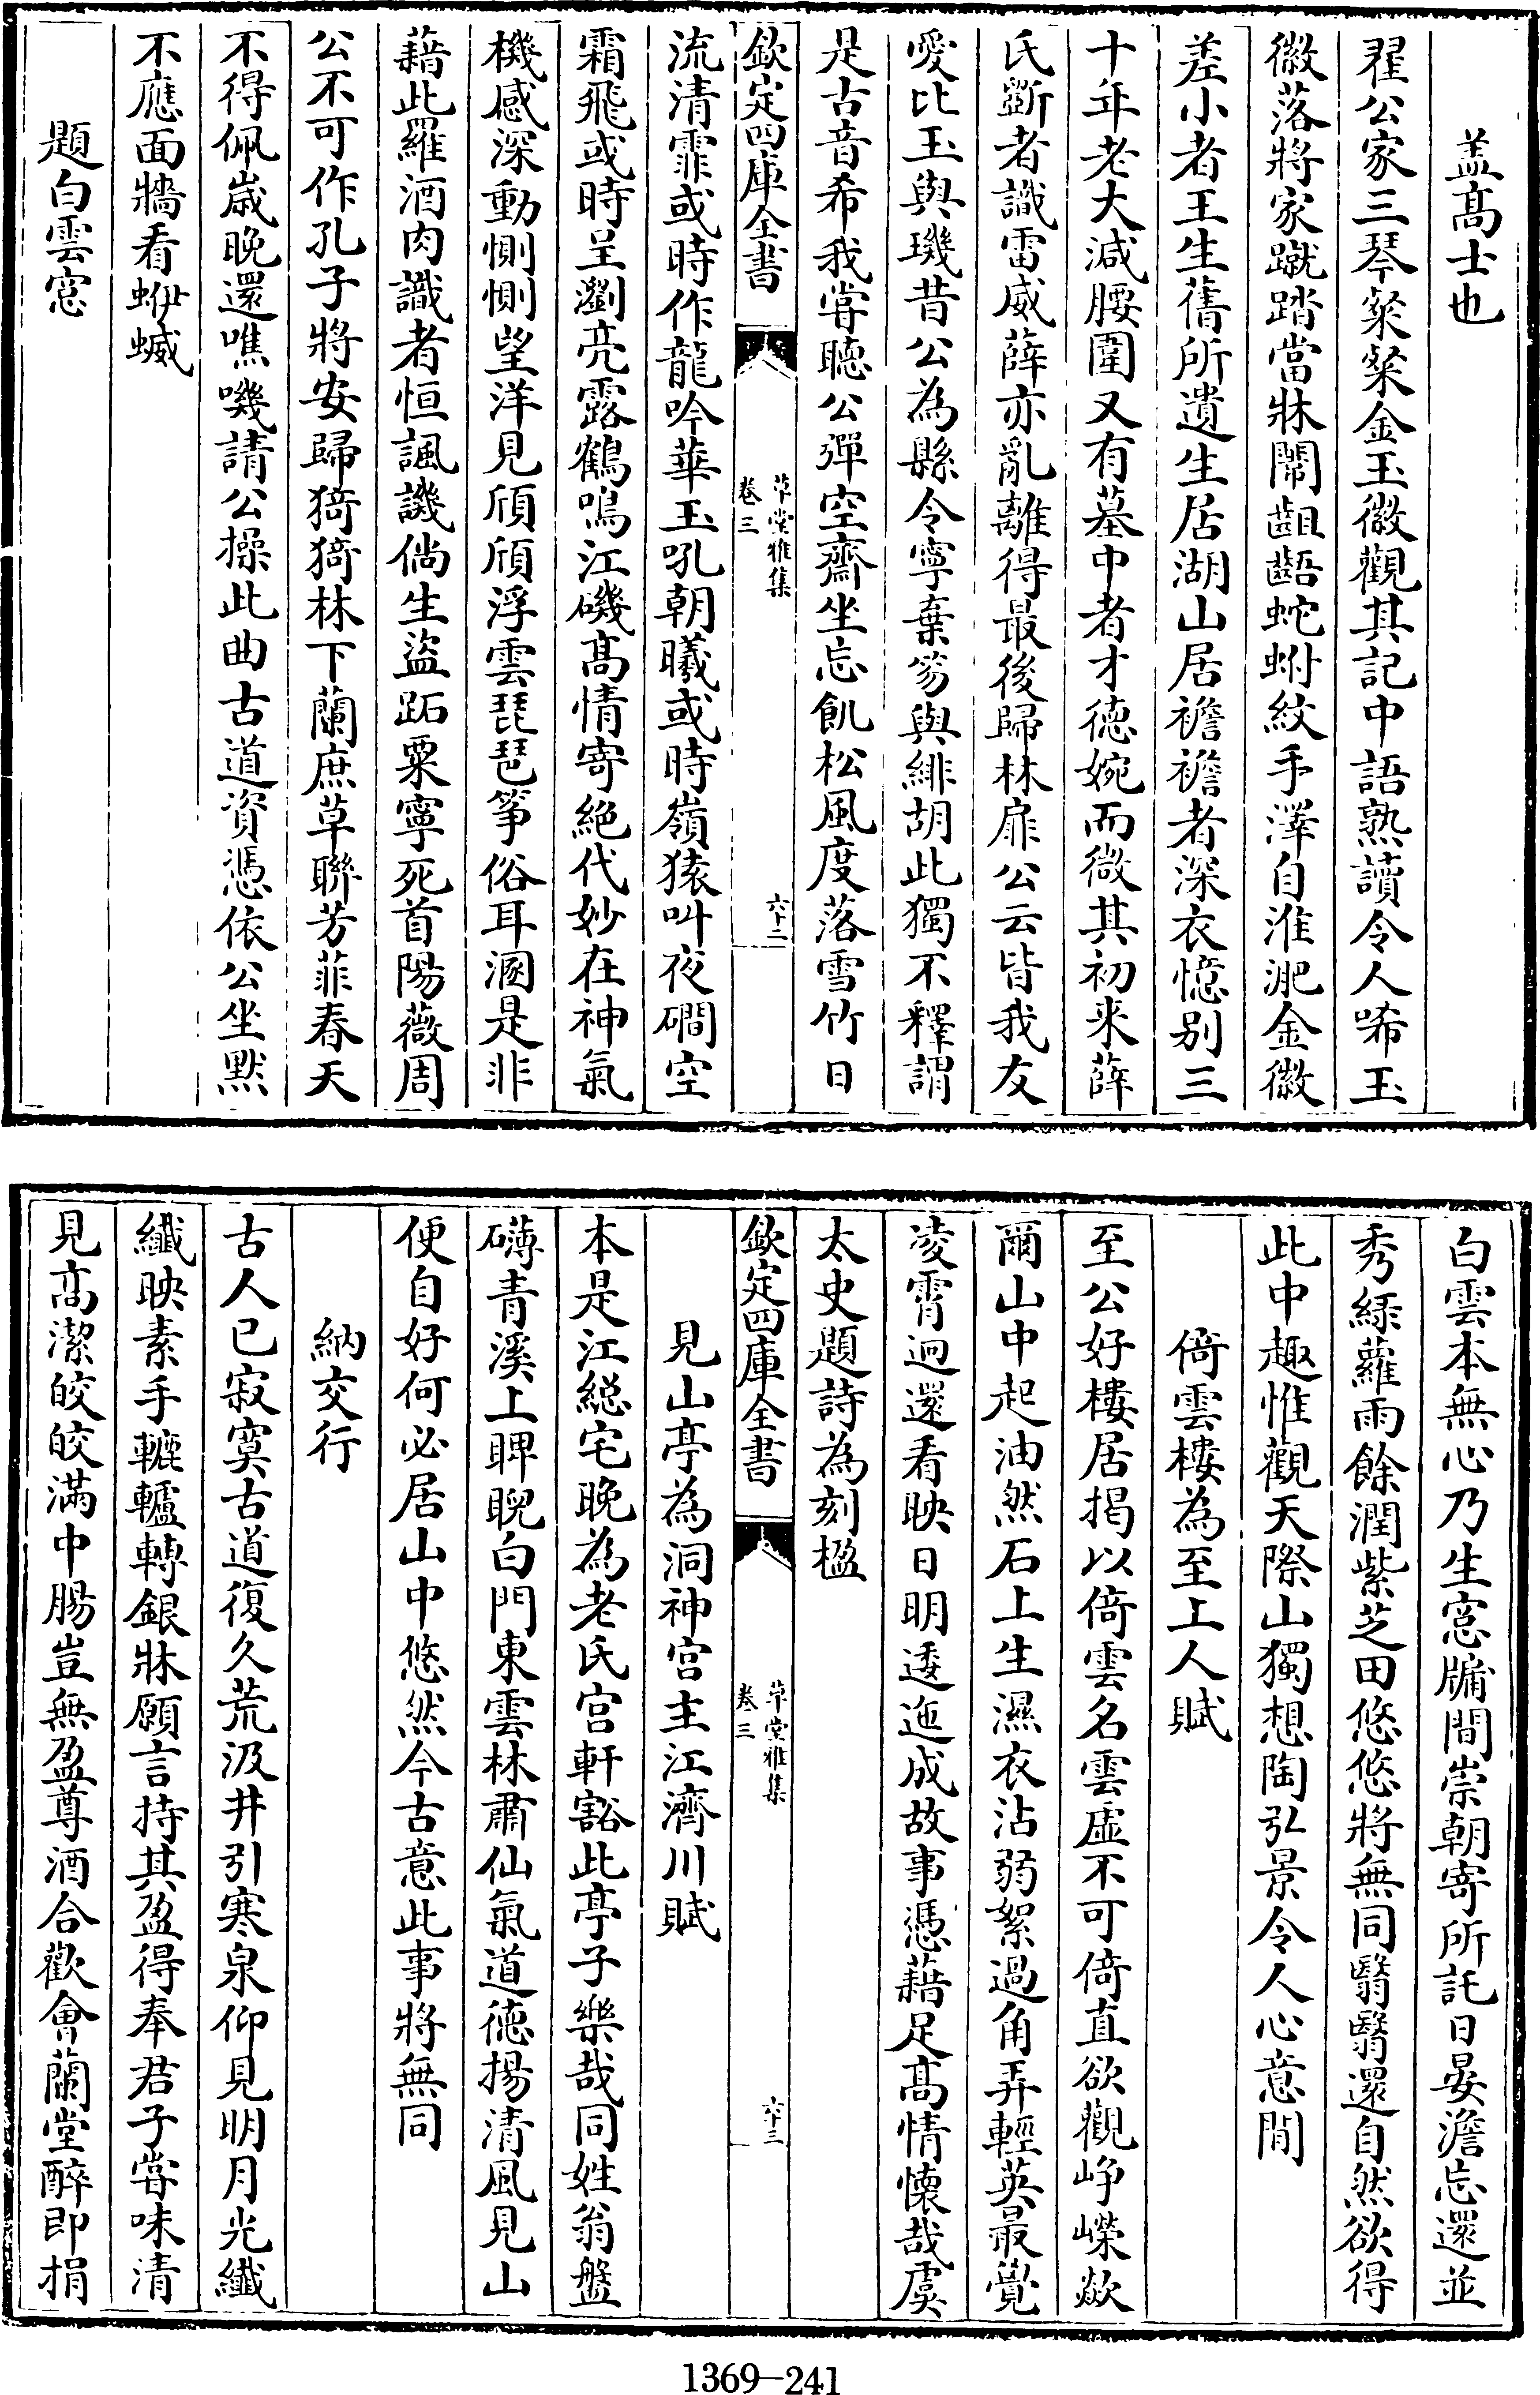 盖髙士也
翟公家三琴粲粲金玉徽觀其記中語熟讀令人唏玉
徽落將家蹴踏當牀闈齟齬蛇蚹紋手澤自淮淝金徽
差小者王生舊所遺生居湖山居襜襜者深衣憶别三
十年老大減腰圍又有墓中者才徳婉而微其初来薛
氏斵者識雷威薛亦亂離得最後歸林扉公云皆我友
愛比玉與璣昔公為縣令寧棄笏與緋胡此獨不釋謂
是古音希我甞聴公彈空齋坐忘飢松風度落雪竹日
欽定四庫全書
草堂雅集
卷三
六十二
流清霏或時作龍吟華玉吼朝曦或時嶺猿叫夜磵空
霜飛或時呈瀏亮露鶴鳴江磯髙情寄絶代妙在神氣
機感深動惻惻望洋見頎頎浮雲琵琶筝俗耳溷是非
藉此羅酒肉識者恒諷譏倘生盜跖粟寧死首陽薇周
公不可作孔子將安歸猗猗林下蘭庶草聯芳菲春天
不得佩嵗晚還噍嘰請公操此曲古道資憑依公坐黙
不應面牆看蛜蝛
題白雲窓
白雲本無心乃生窓牖間崇朝寄所託日晏澹忘還並
秀緑蘿雨餘潤紫芝田悠悠將無同翳翳還自然欲得
此中趣惟觀天際山獨想陶弘景令人心意閒
倚雲樓為至上人賦
至公好樓居掲以倚雲名雲虚不可倚直欲觀峥嶸歘
爾山中起油然石上生濕衣沾弱絮過角弄輕英最覺
凌霄迥還看映日明逶迤成故事憑藉足髙情懷哉虞
太史題詩為刻楹
欽定四庫全書
草堂雅集
卷三
六十三
見山亭為洞神宫主江濟川賦
本是江総宅晚為老氏宫軒豁此亭子樂哉同姓翁盤
礴青溪上睥睨白門東雲林肅仙氣道徳揚清風見山
便自好何必居山中悠然今古意此事將無同
納交行
古人已寂寞古道復久荒汲井引寒泉仰見明月光纖
纖映素手轆轤轉銀牀願言持其盈得奉君子甞味清
見髙潔皎皎滿中腸豈無盈尊酒合歡會蘭堂醉即捐
1369-241